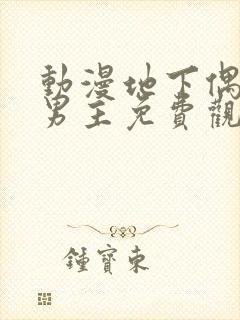 動漫地下偶
男主免費觀
鍾寶東